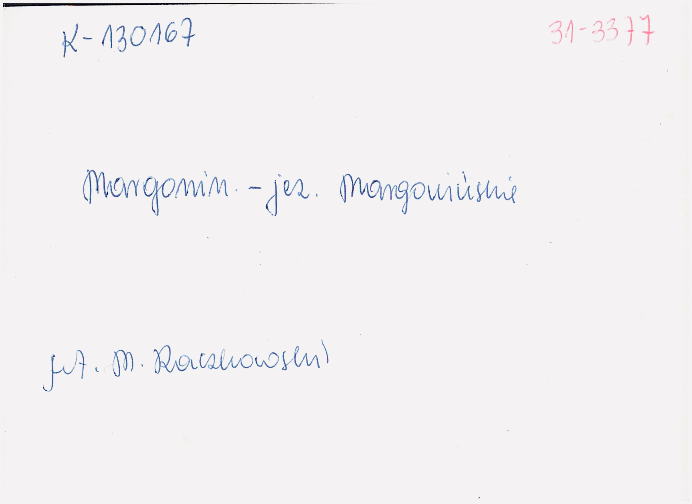 K-130167 31-3377
Margonin. - jez. Margonińskie
fot. M. Raczkowski